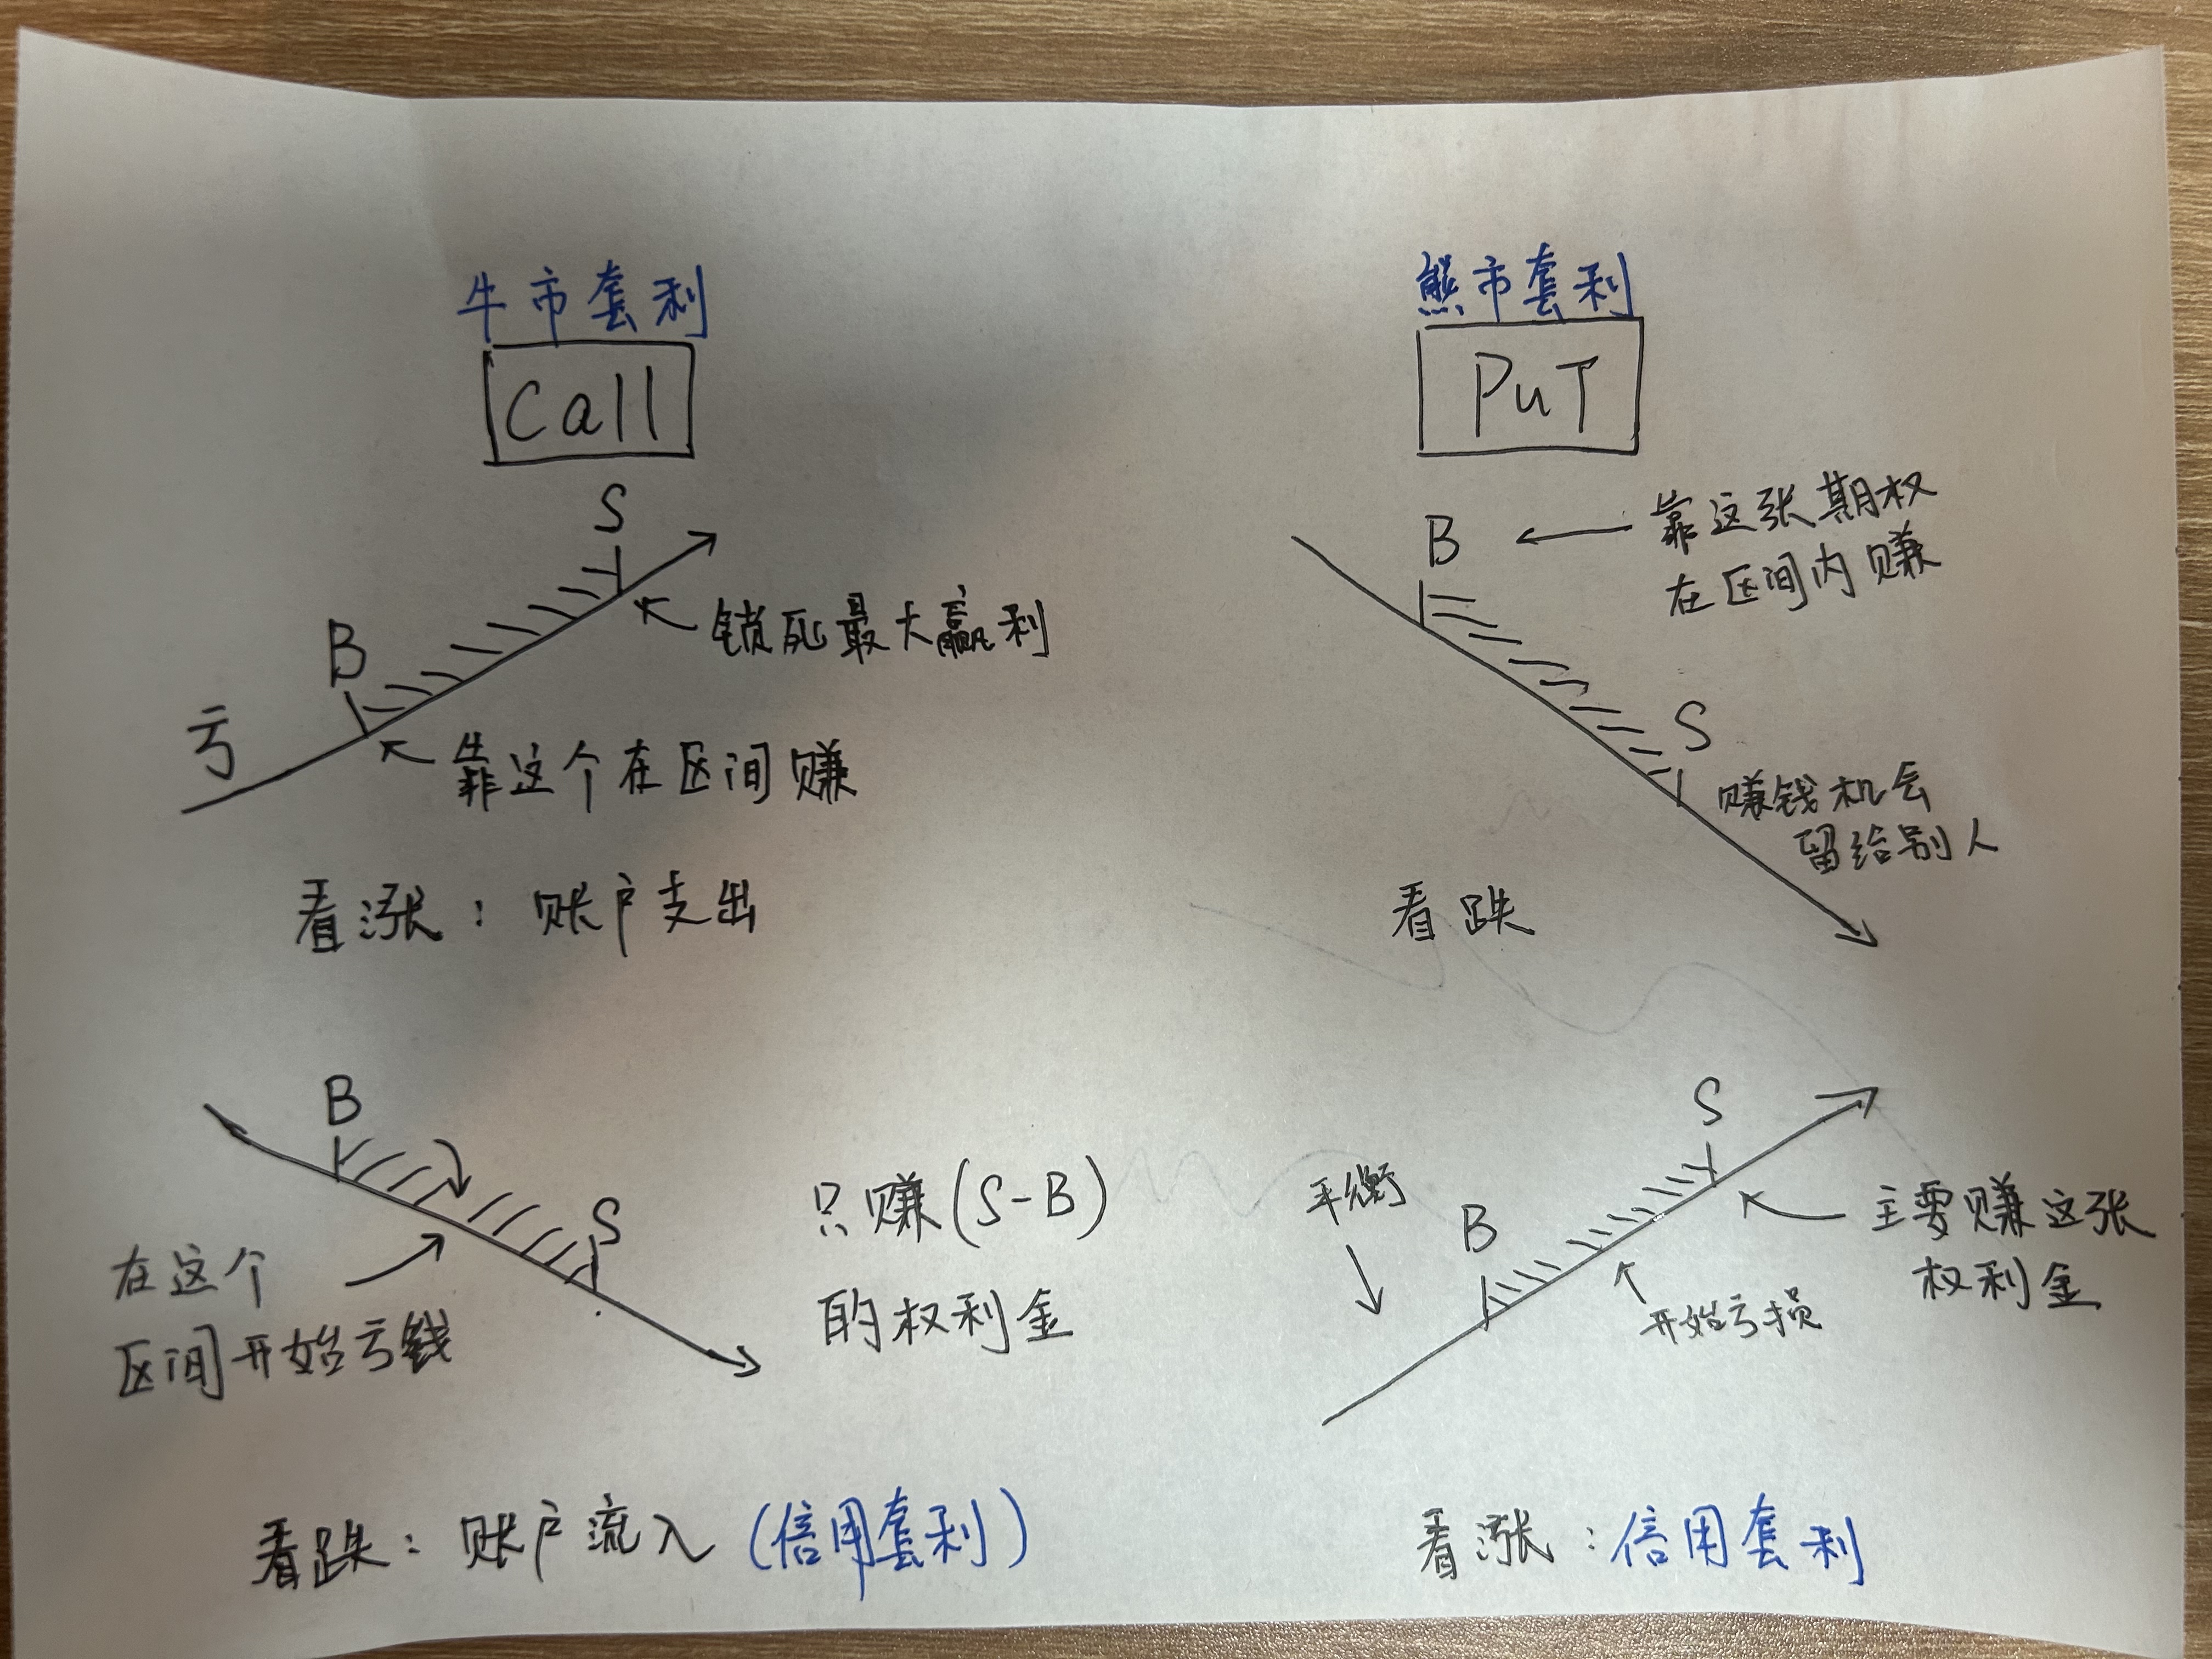 牛市套利
Call
S
B
亏
锁死最大赢利
靠这个在区间赚
看涨：账户支出
熊市套利
PuT
B
靠这张期权
在区间内赚
S
赚钱机会
留给别人
看跌
B
S
在这个
区间开始亏钱
只赚(S-B)
的权利金
看跌：账户流入(信用套利)
平衡
B
S
主要赚这张
权利金
开始亏损
看涨：信用套利